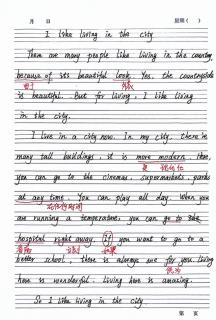 月 日 星期( )
I like living in the city
There are many people like living in the country
because of its beautiful look. Yes. the countryside
is beautiful. But for living I like living
in the city.
I live in a city now. In my city. there're
many tall buildings. it is more modern. Here,
you can go to the cinemas. supermarkets parks
at any time. You can play all day. When you
are running a temperature. you can go to the
hospital right away. If you want to go to a
better school. there is always one for you. living
here is wonderful. Living here is amazing.
So I like living in the city.
第 页